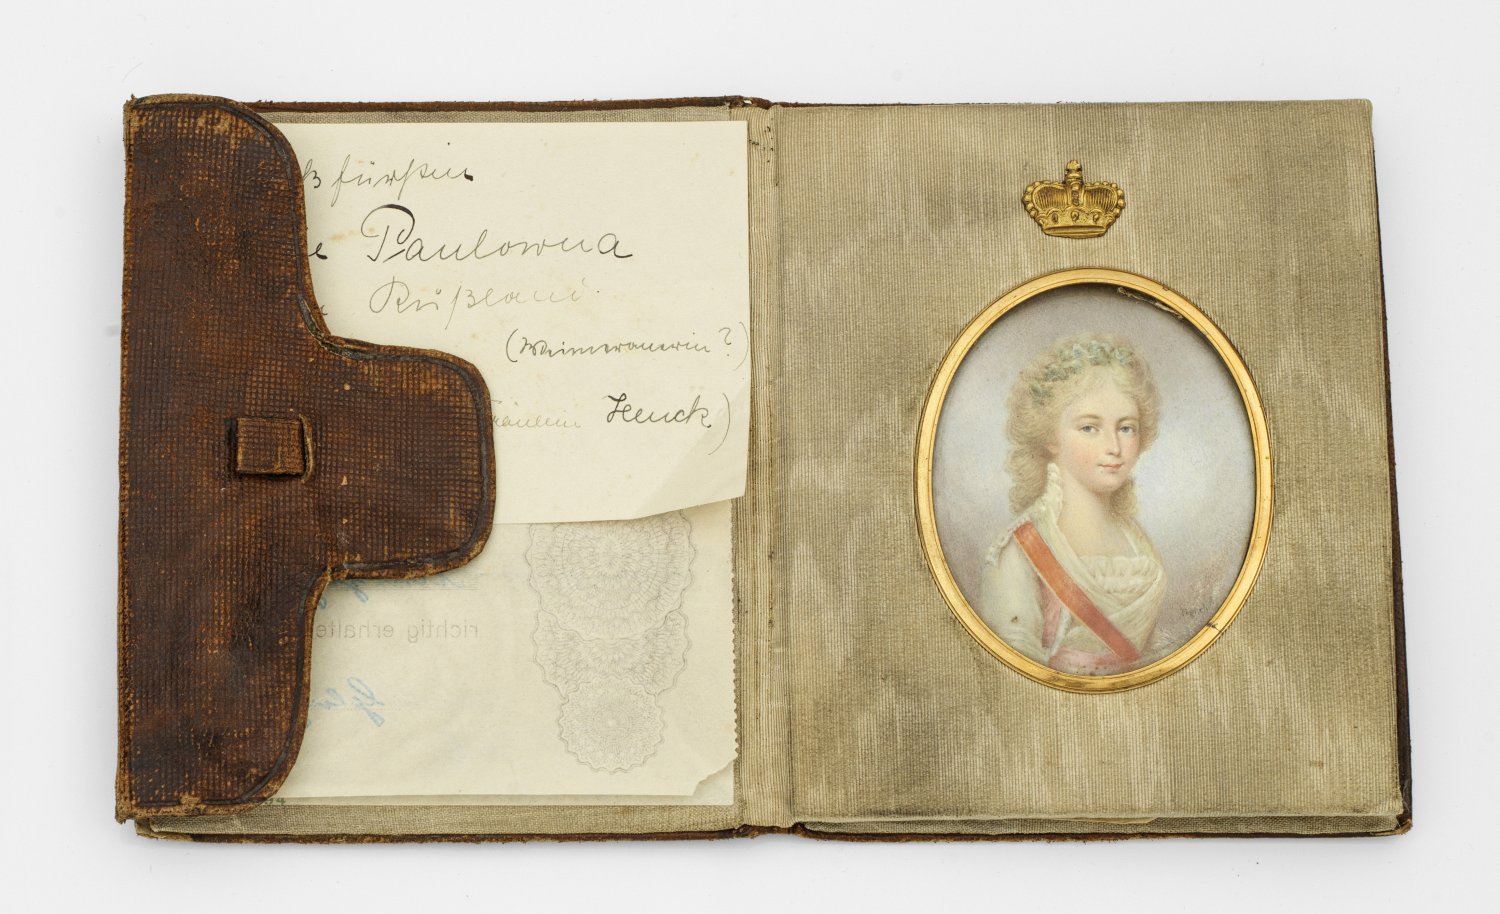 ßfürstin
e Paulowna
Rußland
(Weimeranerin?)
Fräulein Henck)
richtig erhalte